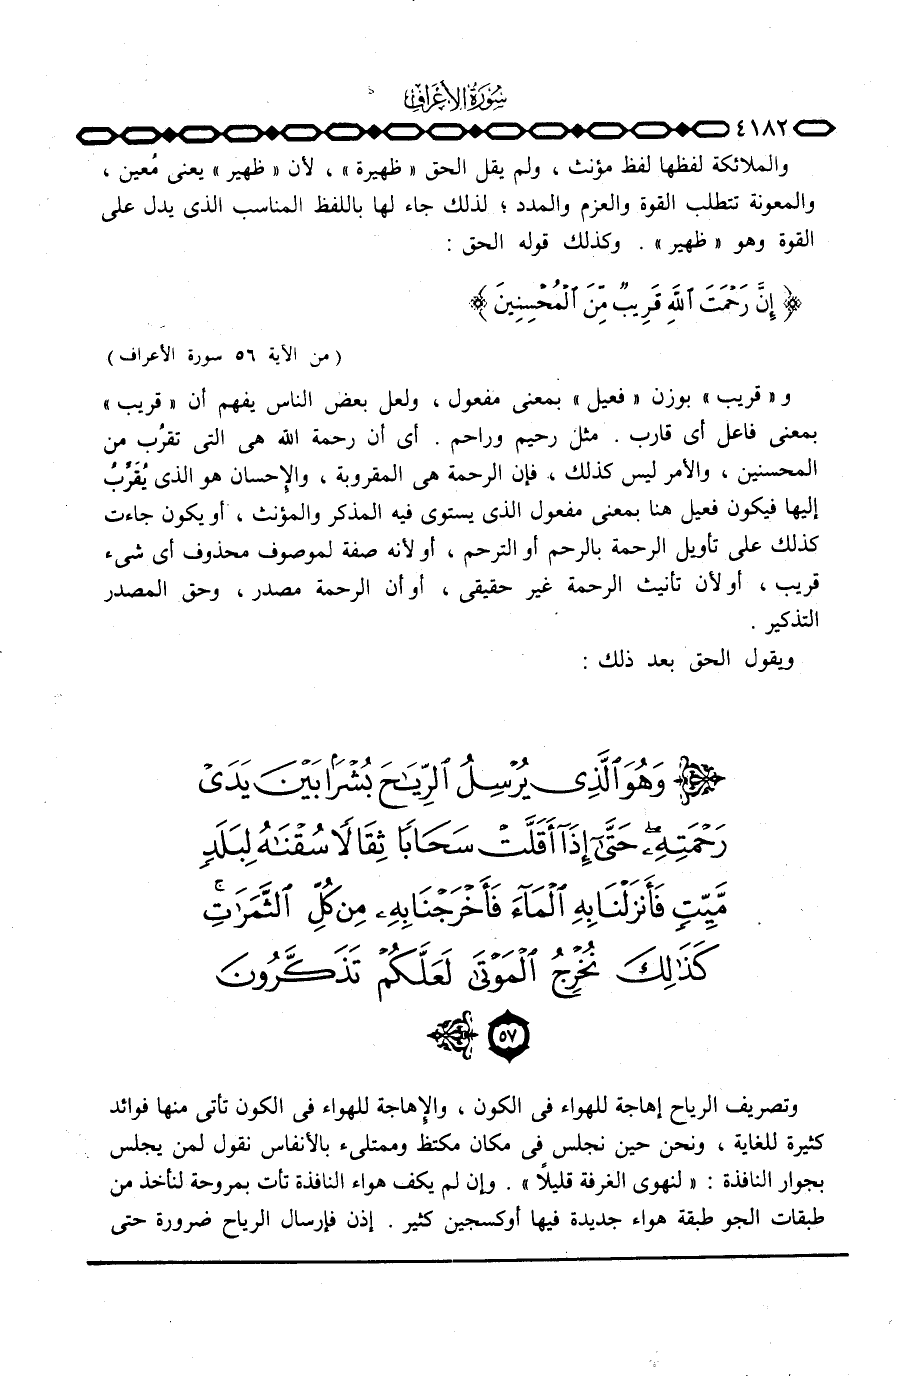 سورة الأعراف
٤١٨٢
والملائكة لفظها لفظ مؤنث ، ولم يقل الحق « ظهيرة » ، لأن « ظهير » يعنى مُعين ،
والمعونة تتطلب القوة والعزم والمدد ؛ لذلك جاء لها باللفظ المناسب الذى يدل على
القوة وهو « ظهير » . وكذلك قوله الحق :
﴿ إِنَّ رَحْمَتَ ٱللَّهِ قَرِيبٌ مِّنَ ٱلْمُحْسِنِينَ ﴾
( من الآية ٥٦ سورة الأعراف )
و « قريب » بوزن « فعيل » بمعنى مفعول ، ولعل بعض الناس يفهم أن « قريب »
بمعنى فاعل أى قارب . مثل رحيم وراحم . أى أن رحمة الله هى التى تقرُب من
المحسنين ، والأمر ليس كذلك ، فإن الرحمة هى المقروبة ، والإحسان هو الذى يُقَرِّبُ
إليها فيكون فعيل هنا بمعنى مفعول الذى يستوى فيه المذكر والمؤنث ، أو يكون جاءت
كذلك على تأويل الرحمة بالرحم أو الترحم ، أو لأنه صفة لموصوف محذوف أى شىء
قريب ، أو لأن تأنيث الرحمة غير حقيقى ، أو أن الرحمة مصدر ، وحق المصدر
التذكير .
ويقول الحق بعد ذلك :
وَهُوَ ٱلَّذِى يُرْسِلُ ٱلرِّيَٰحَ بُشْرًۢا بَيْنَ يَدَىْ
رَحْمَتِهِۦ حَتَّىٰٓ إِذَآ أَقَلَّتْ سَحَابًا ثِقَالًا سُقْنَٰهُ لِبَلَدٍ
مَّيِّتٍ فَأَنزَلْنَا بِهِ ٱلْمَآءَ فَأَخْرَجْنَا بِهِۦ مِن كُلِّ ٱلثَّمَرَٰتِ ۚ
كَذَٰلِكَ نُخْرِجُ ٱلْمَوْتَىٰ لَعَلَّكُمْ تَذَكَّرُونَ
٥٧
وتصريف الرياح إهاجة للهواء فى الكون ، والإهاجة للهواء فى الكون تأتى منها فوائد
كثيرة للغاية ، ونحن حين نجلس فى مكان مكتظ وممتلىء بالأنفاس نقول لمن يجلس
بجوار النافذة : « لنهوى الغرفة قليلاً » . وإن لم يكف هواء النافذة تأت بمروحة لنأخذ من
طبقات الجو طبقة هواء جديدة فيها أوكسجين كثير . إذن فإرسال الرياح ضرورة حتى